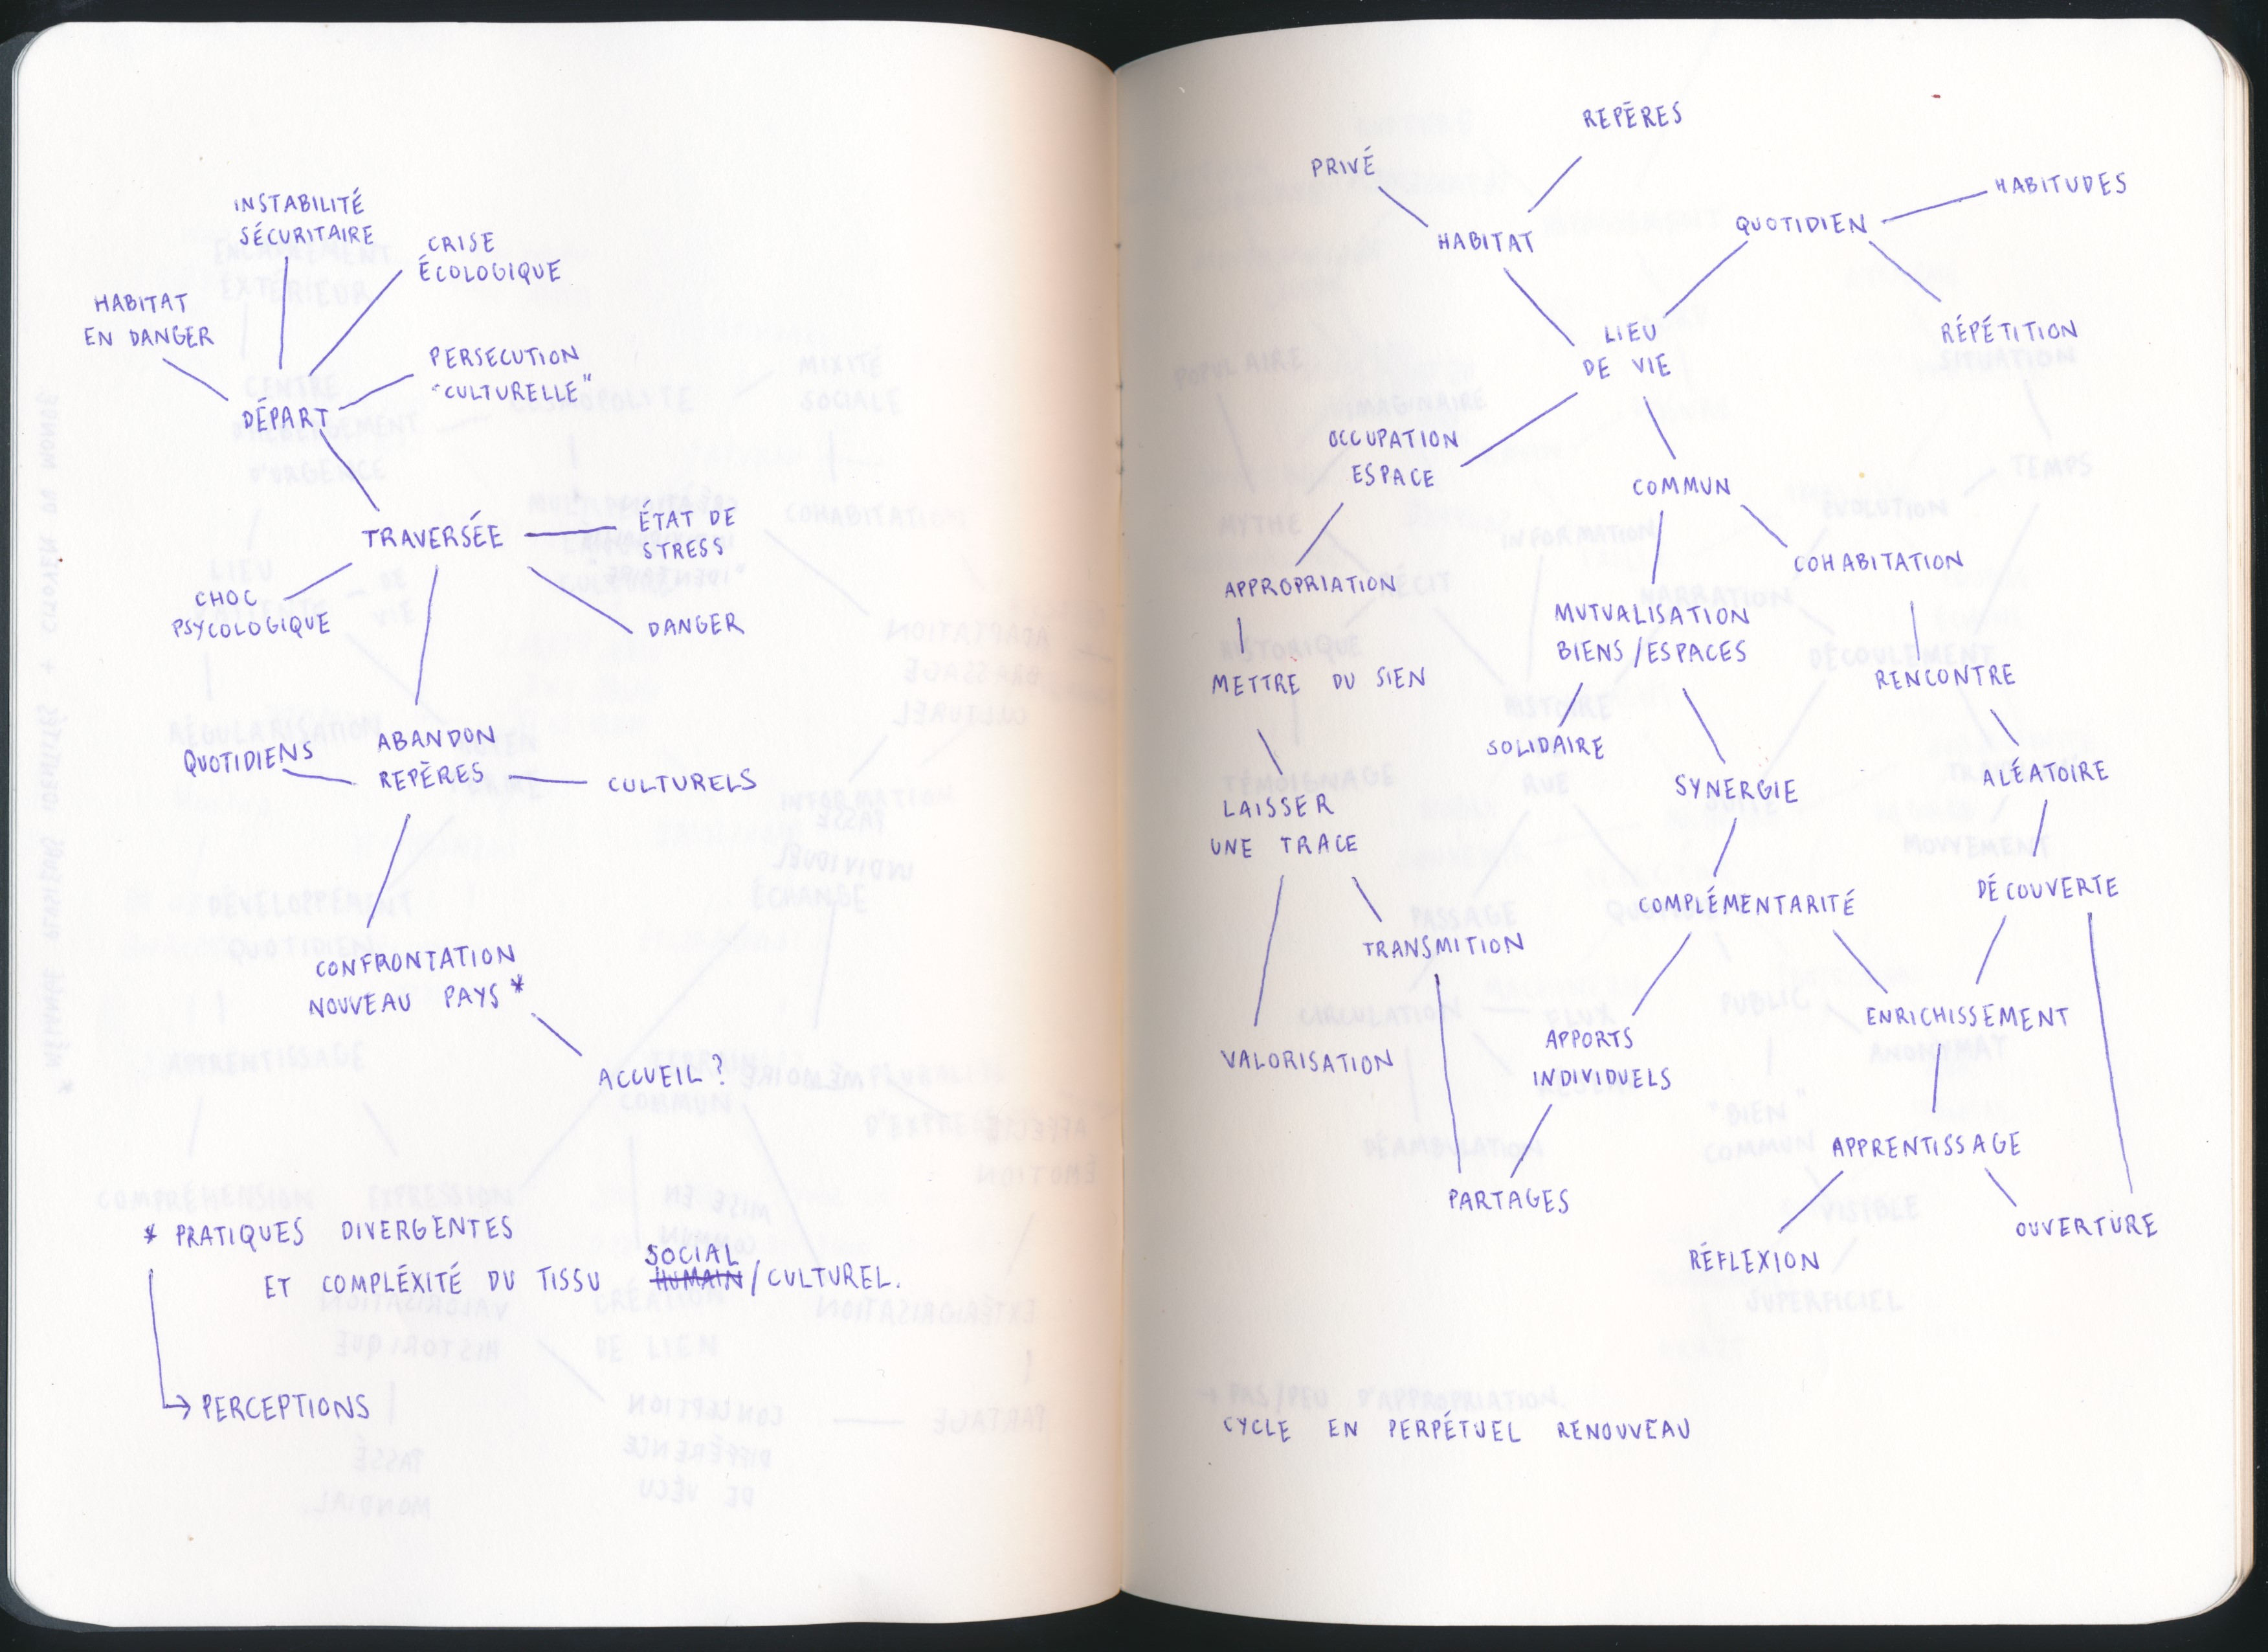 INSTABILITÉ
SÉCURITAIRE
CRISE
ÉCOLOGIQUE
HABITAT
EN DANGER
PERSECUTION
"CULTURELLE"
DÉPART
TRAVERSÉE
ÉTAT DE
STRESS
CHOC
PSYCOLOGIQUE
DANGER
ABANDON
REPÈRES
QUOTIDIENS
CULTURELS
CONFRONTATION
NOUVEAU PAYS *
ACCUEIL ?
* PRATIQUES DIVERGENTES
SOCIAL
ET COMPLÉXITÉ DU TISSU HUMAIN/CULTUREL.
PERCEPTIONS
REPÈRES
PRIVÉ
HABITUDES
QUOTIDIEN
HABITAT
LIEU
DE VIE
RÉPÉTITION
OCCUPATION
ESPACE
COMMUN
COHABITATION
APPROPRIATION
MUTUALISATION
BIENS/ESPACES
RENCONTRE
METTRE DU SIEN
SOLIDAIRE
SYNERGIE
ALÉATOIRE
LAISSER
UNE TRACE
COMPLÉMENTARITÉ
DÉCOUVERTE
TRANSMITION
ENRICHISSEMENT
VALORISATION
APPORTS
INDIVIDUELS
APPRENTISSAGE
PARTAGES
OUVERTURE
RÉFLEXION
CYCLE EN PERPÉTUEL RENOUVEAU